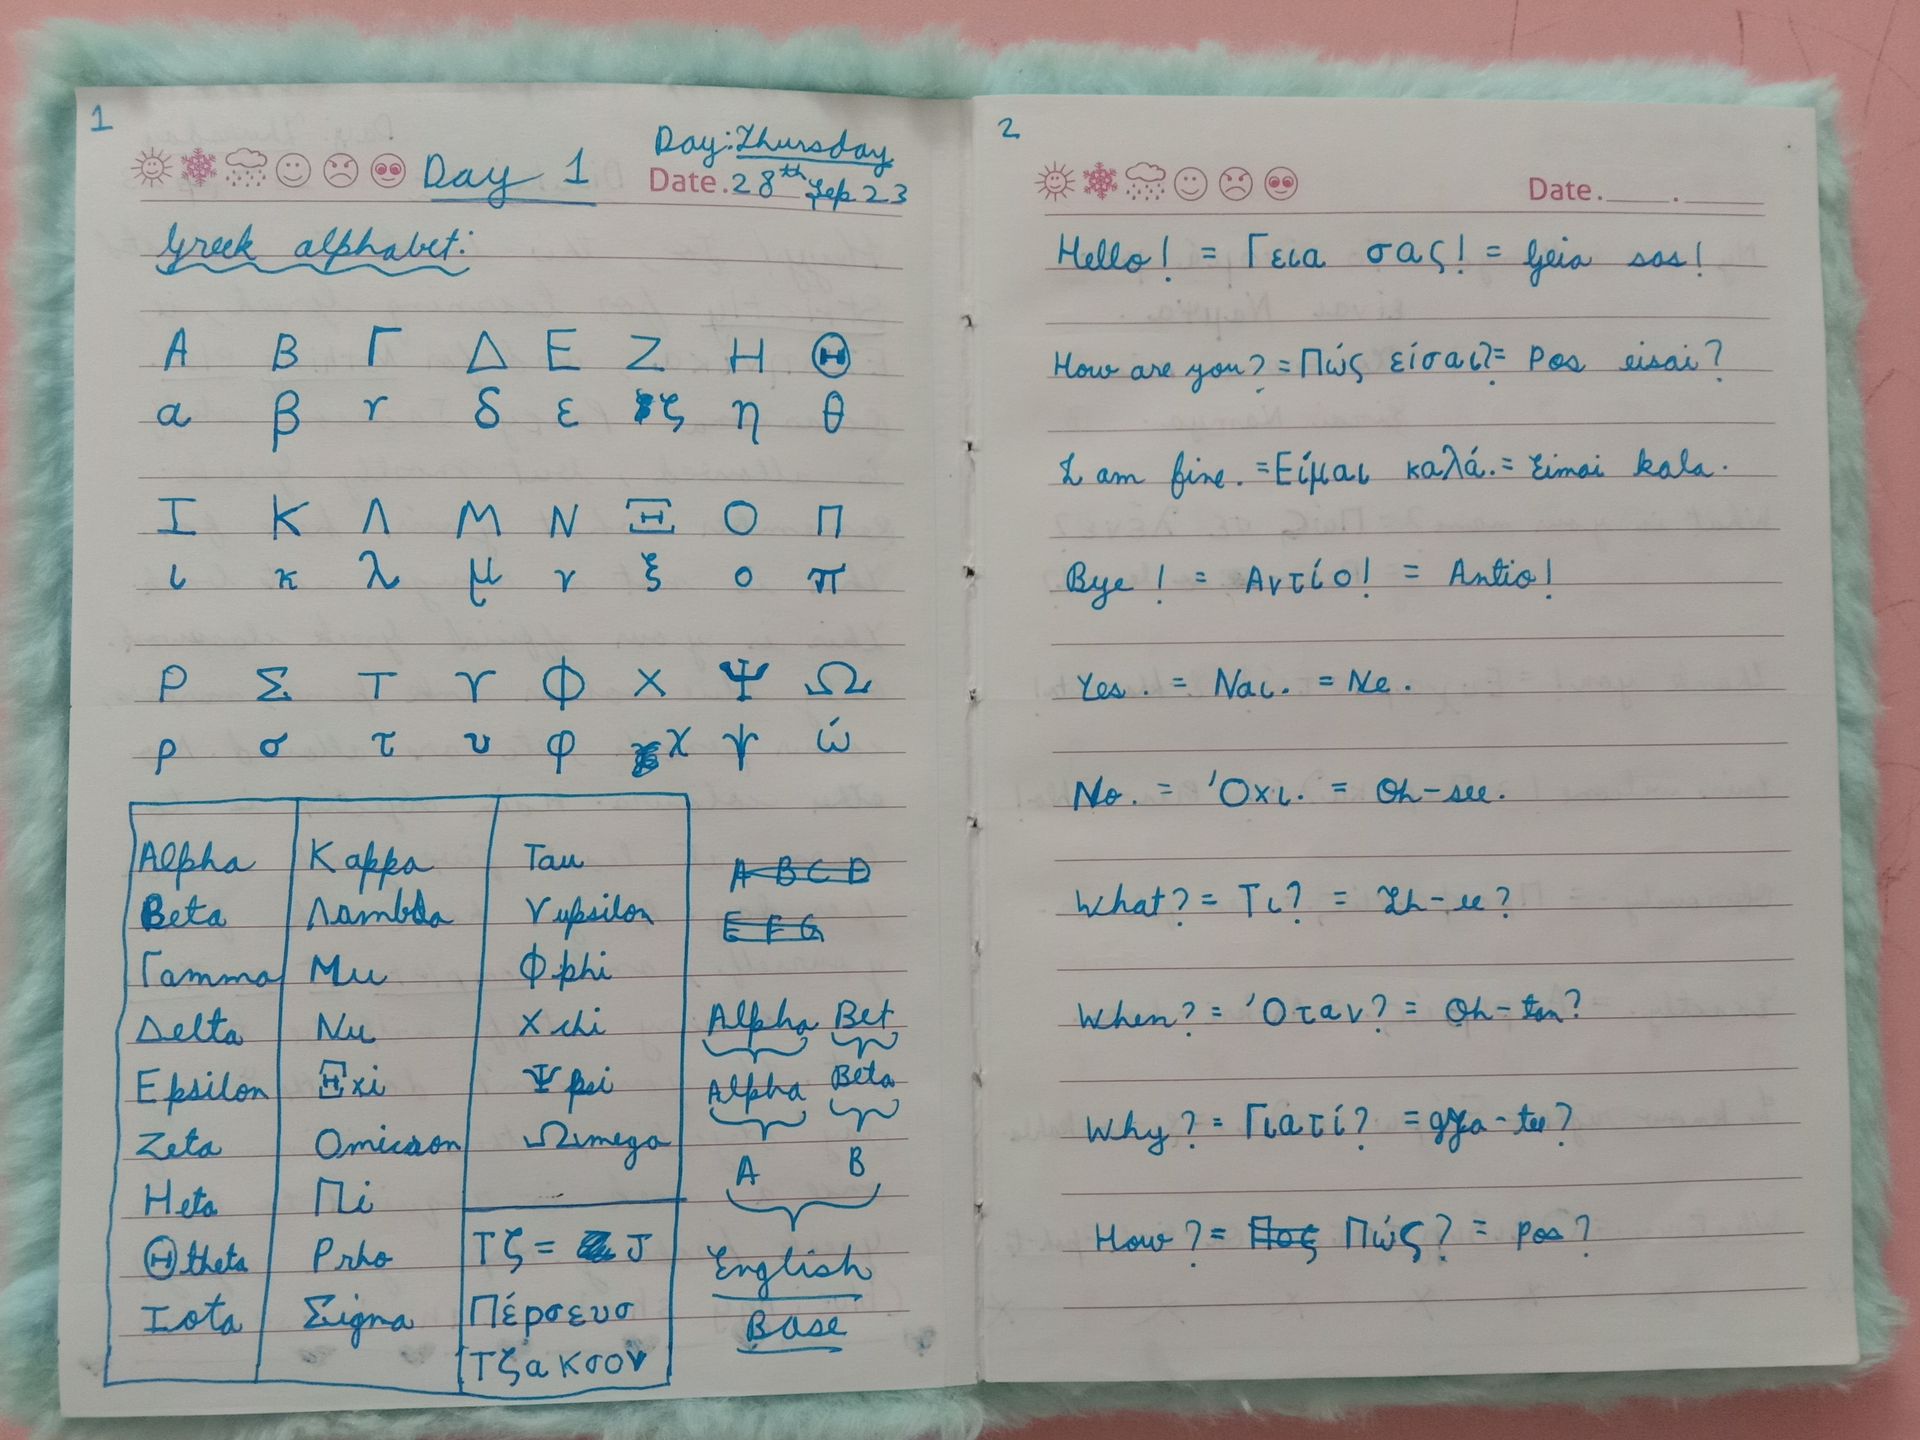 1
Day 1
Day: Thursday
Date. 28th Sep 23
Greek alphabet:
Α Β Γ Δ Ε Ζ Η Θ
α β γ δ ε ζ η θ
Ι Κ Λ Μ Ν Ξ Ο Π
ι κ λ μ ν ξ ο π
Ρ Σ Τ Υ Φ Χ Ψ Ω
ρ σ τ υ φ χ ψ ώ
Alpha
Beta
Γamma
Δelta
Epsilon
Zeta
Heta
Θ theta
Iota
Kappa
Λambda
Mu
Nu
Ξ xi
Omicron
Πi
Prho
Σigma
Tau
Υupsilon
Φ phi
X chi
Ψ psi
Ωmega
Τζ = J
Πέρσευσ
Τζακσον
A B C D
E F G
Alpha Bet
Alpha Beta
A B
English
Base
2
Date. .
Hello! = Γεια σας! = Geia sas!
How are you? = Πώς είσαι? = Pos eisai?
I am fine. = Είμαι καλά. = Eimai kala.
Bye! = Αντίο! = Antio!
Yes. = Ναι. = Ne.
No. = 'Οχι. = Oh-see.
What? = Τι? = Th-ee?
When? = 'Οταν? = Oh-tan?
Why? = Γιατί? = gya-tee?
How? = Πος Πώς? = pos?